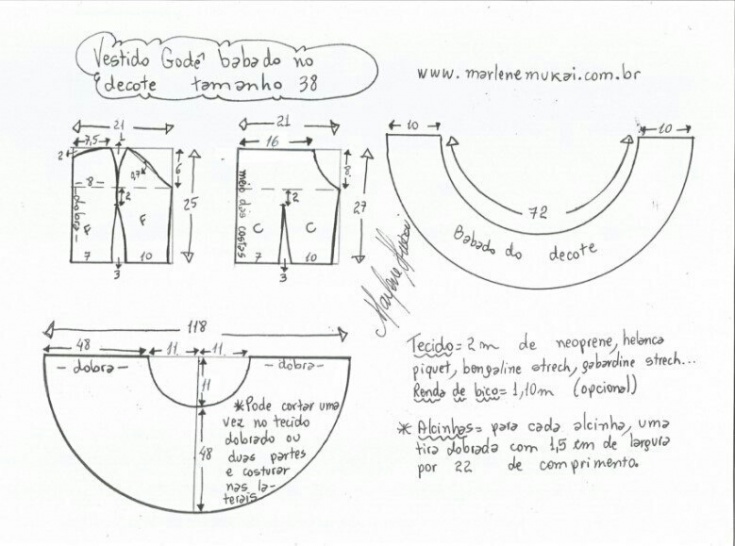 Vestido Godê babado no
decote tamanho 38
www.marlenemukai.com.br
21
7,5
1
2
0,7
9
8
2
25
dobra
F
F
7
10
3
21
16
8
2
27
meio das costas
C
C
7
10
3
10
10
72
Babado do decote
Marlene Mukai
118
48
11
11
- dobra -
- dobra -
11
48
*Pode cortar uma
vez no tecido
dobrado ou
duas partes
e costurar
nas la-
terais
Tecido = 2m de neoprene, helanca
piquet, bengaline strech, gabardine strech...
Renda de bico = 1,10m (opcional)
* Alcinhas = para cada alcinha, uma
tira dobrada com 1,5 cm de largura
por 22 de comprimento.